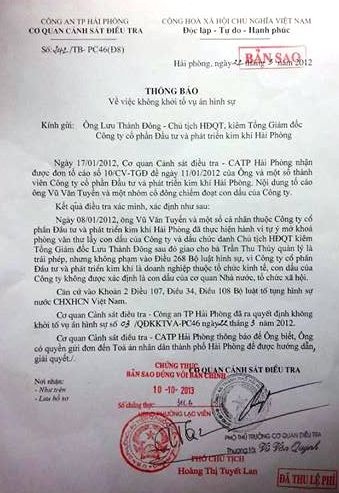 CÔNG AN TP HẢI PHÒNG
CƠ QUAN CẢNH SÁT ĐIỀU TRA
CỘNG HOÀ XÃ HỘI CHỦ NGHĨA VIỆT NAM
Độc lập - Tự do - Hạnh phúc
Số: /TB- PC46(Đ8)
BẢN SAO
Hải phòng, ngày 22 tháng 3 năm 2012
THÔNG BÁO
Về việc không khởi tố vụ án hình sự
Kính gửi: Ông Lưu Thành Đông - Chủ tịch HĐQT, kiêm Tổng Giám đốc
Công ty cổ phần Đầu tư và phát triển kim khí Hải Phòng
Ngày 17/01/2012, Cơ quan Cảnh sát điều tra - CATP Hải Phòng nhận
được đơn tố cáo số 10/CV-TGĐ đề ngày 11/01/2012 của Ông và một số thành
viên Công ty cổ phần Đầu tư và phát triển kim khí Hải Phòng. Nội dung tố cáo
ông Vũ Văn Tuyến và một nhóm cổ đông chiếm đoạt con dấu của Công ty.
Kết quả điều tra xác minh, xác định như sau:
Ngày 08/01/2012, ông Vũ Văn Tuyến và một số cá nhân thuộc Công ty cổ
phần Đầu tư và phát triển kim khí Hải Phòng đã thực hiện hành vi tự ý mở khoá
phòng văn thư lấy con dấu của Công ty và dấu chức danh Chủ tịch HĐQT kiêm
Tổng Giám đốc Lưu Thành Đông sau đó giao cho bà Trần Thu Thủy quản lý là
trái phép, nhưng không phạm vào Điều 268 Bộ luật hình sự, vì Công ty cổ phần
Đầu tư và phát triển kim khí là doanh nghiệp thuộc tổ chức kinh tế, con dấu của
Công ty không được xác định là con dấu của cơ quan Nhà nước, tổ chức xã hội.
Căn cứ vào Khoản 2 Điều 107, Điều 34, Điều 108 Bộ luật tố tụng hình sự
nước CHXHCN Việt Nam.
Cơ quan Cảnh sát điều tra - Công an TP Hải Phòng đã ra quyết định không
khởi tố vụ án hình sự số 03 /QĐKKTVA-PC46 ngày 22 tháng 3 năm 2012.
Cơ quan Cảnh sát điều tra - CATP Hải Phòng thông báo để Ông biết, Ông
có quyền gửi đơn đến Toà án nhân dân thành phố Hải Phòng để được hướng dẫn,
giải quyết./.
Nơi nhận:
- Như trên
- Lưu hồ sơ
CHỨNG THỰC
BẢN SAO ĐÚNG VỚI BẢN CHÍNH
10 -10- 2013
Số chứng thực:
CƠ QUAN CẢNH SÁT ĐIỀU TRA
PHƯỜNG LẠC VIÊN
PHÓ CHỦ TỊCH
Hoàng Thị Tuyết Lan
PHÓ THỦ TRƯỞNG CƠ QUAN ĐIỀU TRA
Vũ Văn Quỳnh
ĐÃ THU LỆ PHÍ